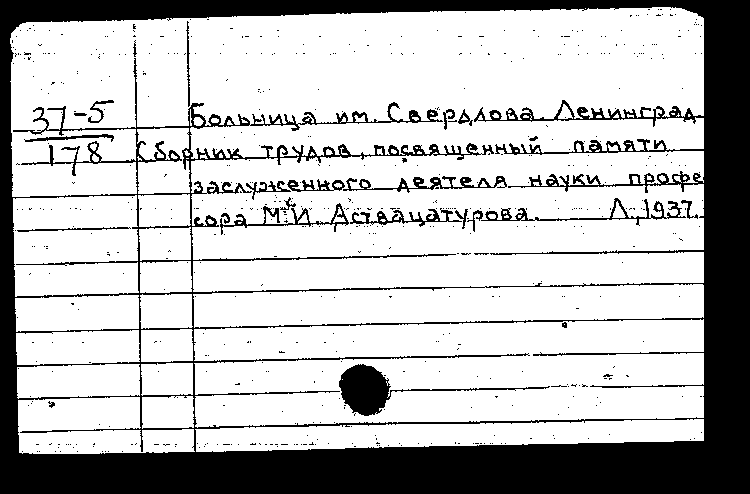 37-5
178
Больница им. Свердлова. Ленинград.
Сборник трудов, посвященный памяти
заслуженного деятеля науки профе
сора М. И. Аствацатурова. Л., 1937.